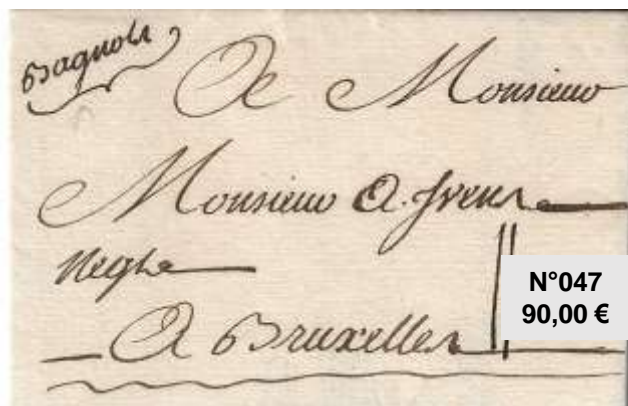 Bagnols
A Monsieur
Monsieur A. frens
Neghe
A Bruxelles
N°047
90,00 €